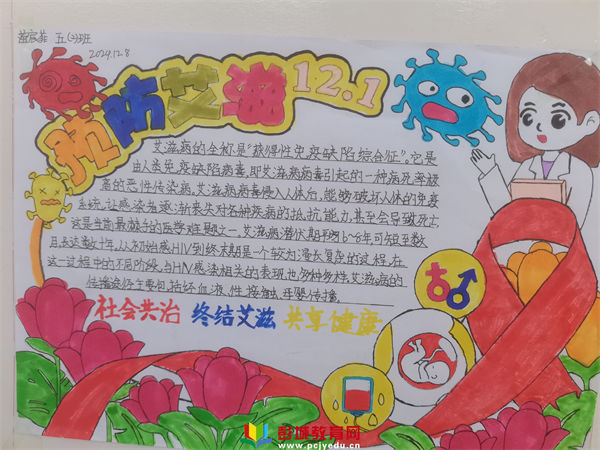 五(2)班
2024.12.8
预防艾滋
12.1
艾滋病的全称是“获得性免疫缺陷综合征”。它是
由人类免疫缺陷病毒,即艾滋病病毒引起的一种病死率极
高的恶性传染病。艾滋病病毒侵入人体后,能够破坏人体的免疫
系统,让感染者逐渐丧失对各种疾病的抵抗能力,甚至会导致死亡,
这是当前最棘手的医学难题之一。艾滋病潜伏期平均6~8年可短至数
月,长达数十年,从初始感HIV到终末期是一个较为漫长复杂的过程,在
这一过程中的不同阶段,与HIV感染相关的表现也多种多样,艾滋病的
传播途径主要包括经血液、性接触、母婴传播。
社会共治 终结艾滋 共享健康
彭城教育网
www.pcjyedu.cn